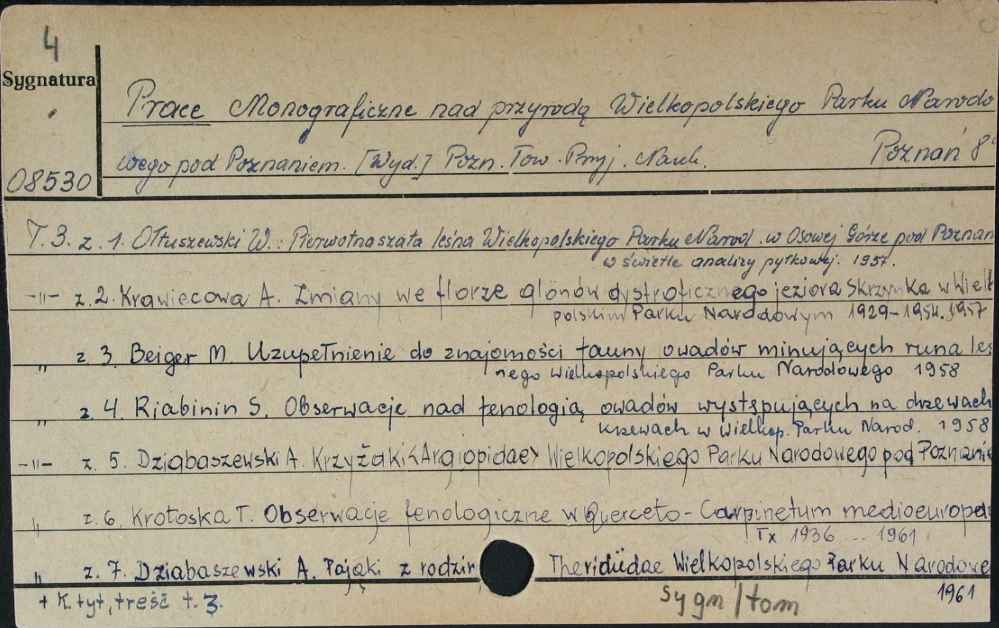 4
Sygnatura
08530
Prace Monograficzne nad przyrodą Wielkopolskiego Parku Narodo
wego pod Poznaniem. [Wyd.] Pozn. Tow. Przyj. Nauk. Poznań 8°
T. 3. z. 1. Ołtuszewski W.: Pierwotna szata leśna Wielkopolskiego Parku Narod. w Osowej Górze pod Poznan
w świetle analizy pyłkowej. 1957.
-"- z. 2. Krawiecowa A. Zmiany we florze glonów dystroficznego jeziora Skrzynka w Wielk
polskim Parku Narodowym 1929-1954. 1957
" z 3. Beiger M. Uzupełnienie do znajomości fauny owadów minujących runa leś
nego Wielkopolskiego Parku Narodowego 1958
" z. 4. Riabinin S. Obserwacje nad fenologią owadów występujących na drzewach
krzewach w Wielkop. Parku Narod. 1958
-"- z. 5. Dziabaszewski A. Krzyżaki <Argiopidae> Wielkopolskiego Parku Narodowego pod Poznanie
" z. 6. Krotoska T. Obserwacje fenologiczne w Querceto-Carpinetum medioeuropae
Tx 1936 ... 1961
" z. 7. Dziabaszewski A. Pająki z rodzin Theridiidae Wielkopolskiego Parku Narodowe
1961
+ K. tyt, treść t. 3.
sygn/tom